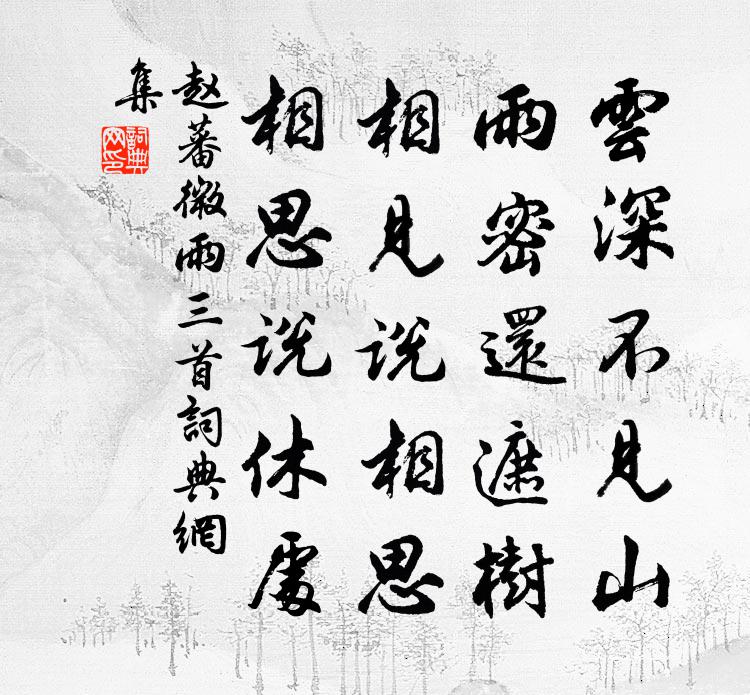 雲深不見山
雨密還遮樹
相見说相思
相思说休處
赵蕃微雨三首詞典網
集
詞典
网印